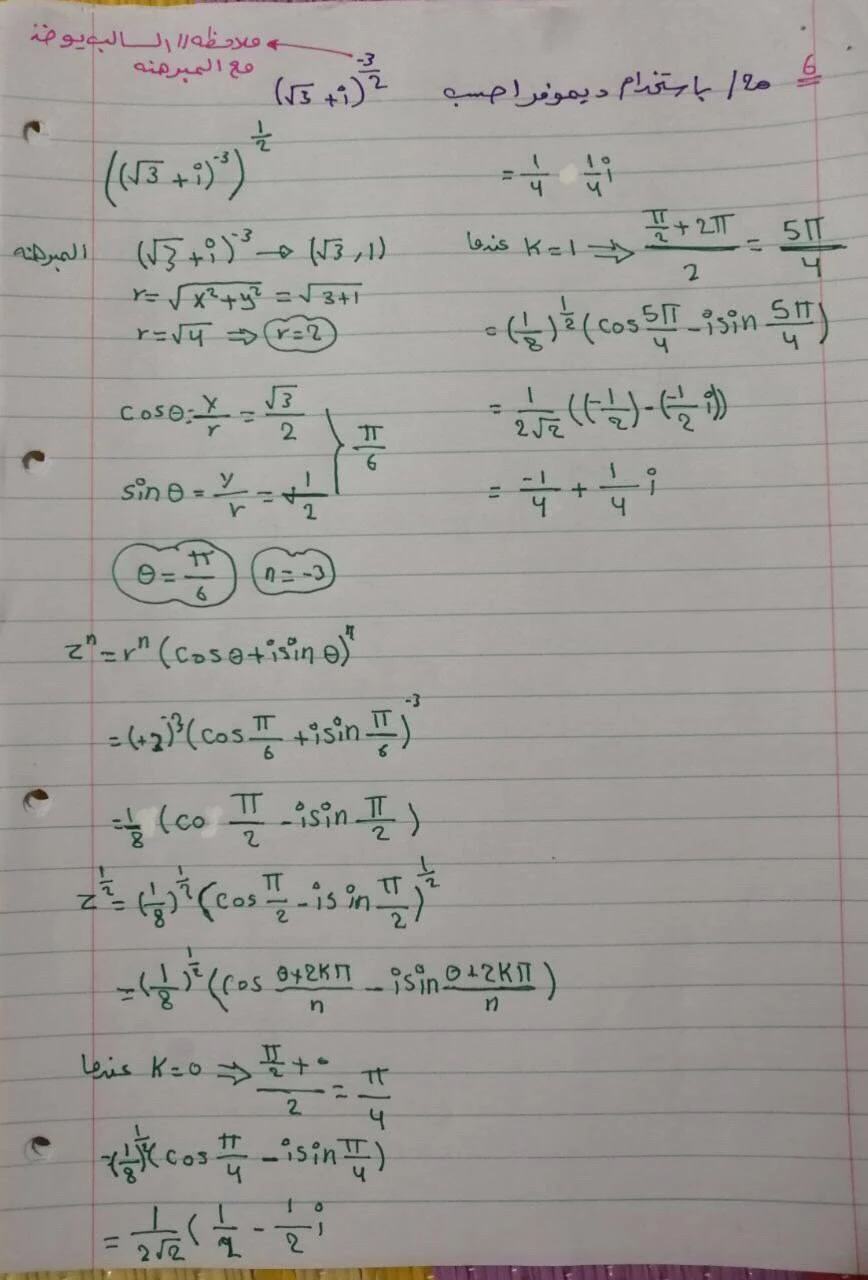 ملاحظه // السالب يوخذ
مع المبرهنه
6
20/ باستخدام ديموفر احسب (√3 + i)^(-3/2)
((√3 + i)^-3)^(1/2)
المبرهنه (√3 + i)^-3 → (√3, 1)
r = √(x² + y²) = √(3+1)
r = √4 ⇒ r = 2
cosθ = x/r = √3/2
π/6
sinθ = y/r = +1/2
θ = π/6 n = -3
z^n = r^n (cosθ + i sinθ)^n
= (+2)^-3 (cos π/6 + i sin π/6)^-3
= 1/8 (co π/2 - i sin π/2)
z^(1/2) = (1/8)^(1/2) (cos π/2 - i sin π/2)^(1/2)
= (1/8)^(1/2) (cos (θ+2Kπ)/n - i sin (θ+2Kπ)/n)
عندما K=0 ⇒ (π/2 + 0)/2 = π/4
= (1/8)^(1/2) (cos π/4 - i sin π/4)
= 1/(2√2) (1/2 - 1/2 i
= 1/4 1/4 i
عندما K=1 ⇒ (π/2 + 2π)/2 = 5π/4
= (1/8)^(1/2) (cos 5π/4 - i sin 5π/4)
= 1/(2√2) ((-1/2) - (-1/2 i))
= -1/4 + 1/4 i